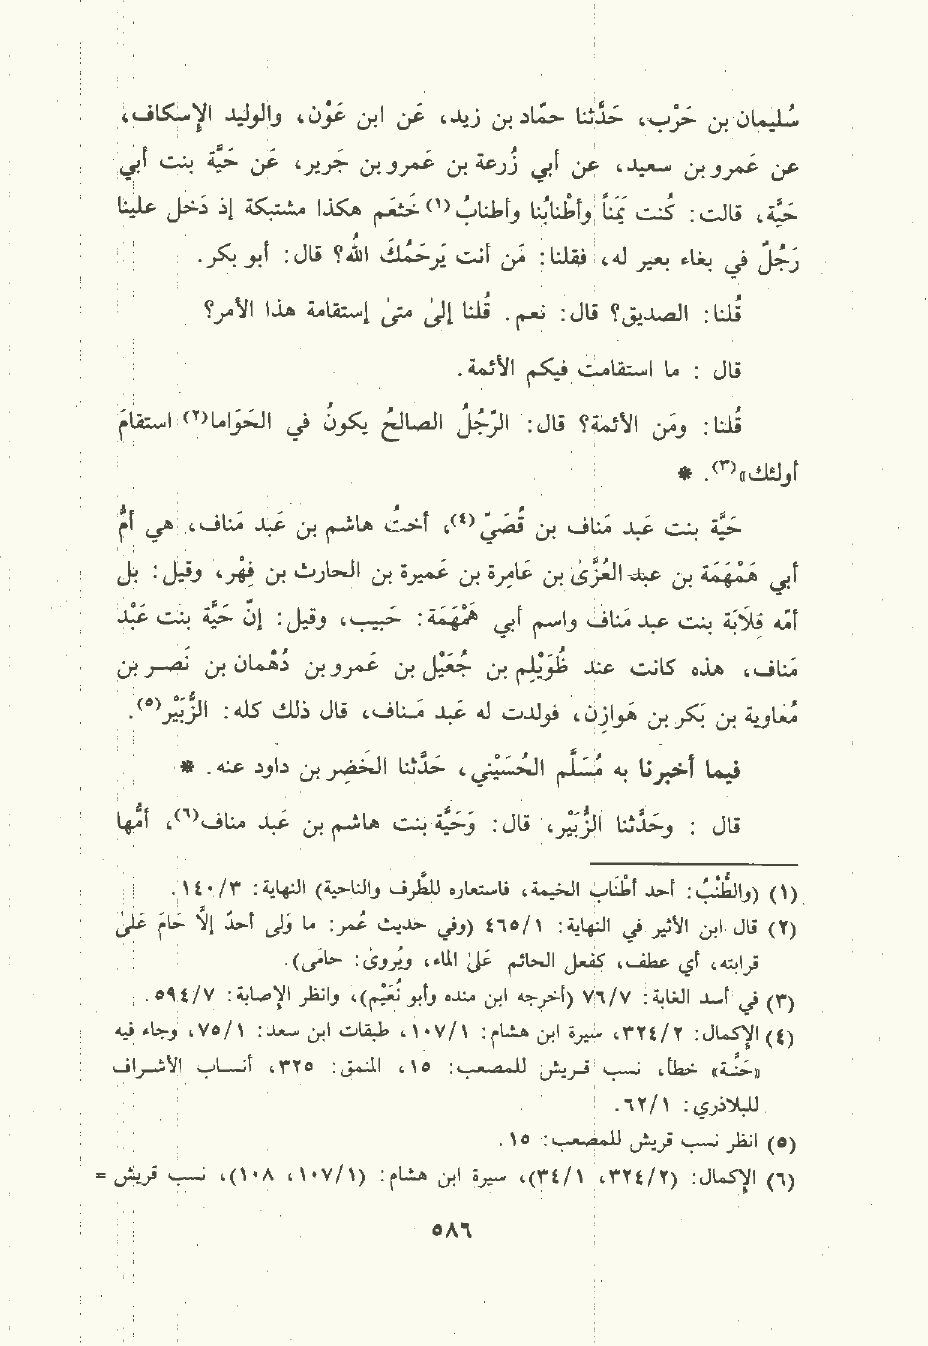 سُليمان بن حَرْب، حَدَّثنا حمّاد بن زيد، عَن ابن عَوْن، والوليد الإسكاف،
عن عَمرو بن سعيد، عن أبي زُرعة بن عَمرو بن جَرير، عَن حَيَّة بنت أبي
حَيَّة، قالت: كُنت يَمَناً وأطْنابُنا وأطنابُ(١) خَثعَم هكذا مشتبكة إذ دَخل علينا
رَجُلٌ في بغاء بعير له، فقلنا: مَن أنت يَرحَمُكَ اللهُ؟ قال: أبو بكر.
قُلنا: الصديق؟ قال: نعم. قُلنا إلىٰ متىٰ إستقامة هذا الأمر؟
قال : ما استقامت فيكم الأئمة.
قُلنا: ومَن الأئمة؟ قال: الرّجُلُ الصالحُ يكونُ في الحَوَاما(٢) استقامَ
أولئك»(٣). *
حَيَّة بنت عَبد مَناف بن قُصَيّ(٤)، أختُ هاشم بن عَبد مَناف، هي أمُّ
أبي هَمْهَمَة بن عبد العُزَّىٰ بن عَامِرة بن عَميرة بن الحارث بن فِهْر، وقيل: بل
أمّه قِلَابَة بنت عبد مَناف واسم أبي هَمْهَمَة: حَبيب، وقيل: إنّ حَيَّة بنت عَبْد
مَناف، هذه كانت عند ظُوَيْلِم بن جُعَيْل بن عَمرو بن دُهْمان بن نَصر بن
مُعَاوية بن بَكر بن هَوازِن، فولدت له عَبد مَناف، قال ذلك كله: الزُّبَيْر(٥).
فيما أخبرنا به مُسَلَّم الحُسَيْني، حَدَّثنا الخَضِر بن داود عنه. *
قال : وحَدَّثنا الزُّبَيْر، قال: وَحَيَّة بنت هاشم بن عَبد مناف(٦)، أمُّها
(١) (والطُّنْبُ: أحد أطْنَاب الخيمة، فاستعاره للطَّرف والناحية) النهاية: ١٤٠/٣.
(٢) قال ابن الأثير في النهاية: ٤٦٥/١ (وفي حديث عُمر: ما وَلى أحدٌ إلاَّ حَامَ عَلىٰ
قرابته، أي عطف، كفعل الحائم عَلىٰ الماء، ويُروىٰ: حامَى).
(٣) في أسد الغابة: ٧٦/٧ (أخرجه ابن منده وأبو نُعَيْم)، وانظر الإصابة: ٥٩٤/٧.
(٤) الإكمال: ٣٢٤/٢، سيرة ابن هشام: ١٠٧/١، طبقات ابن سعد: ٧٥/١، وجاء فيه
«حَنَّة» خطأ، نسب قريش للمصعب: ١٥، المنمق: ٣٢٥، أنساب الأشراف
للبلاذري: ٦٢/١.
(٥) انظر نسب قريش للمصعب: ١٥.
(٦) الإكمال: (٣٢٤/٢، ٣٤/١)، سيرة ابن هشام: (١٠٧/١، ١٠٨)، نسب قريش =
٥٨٦